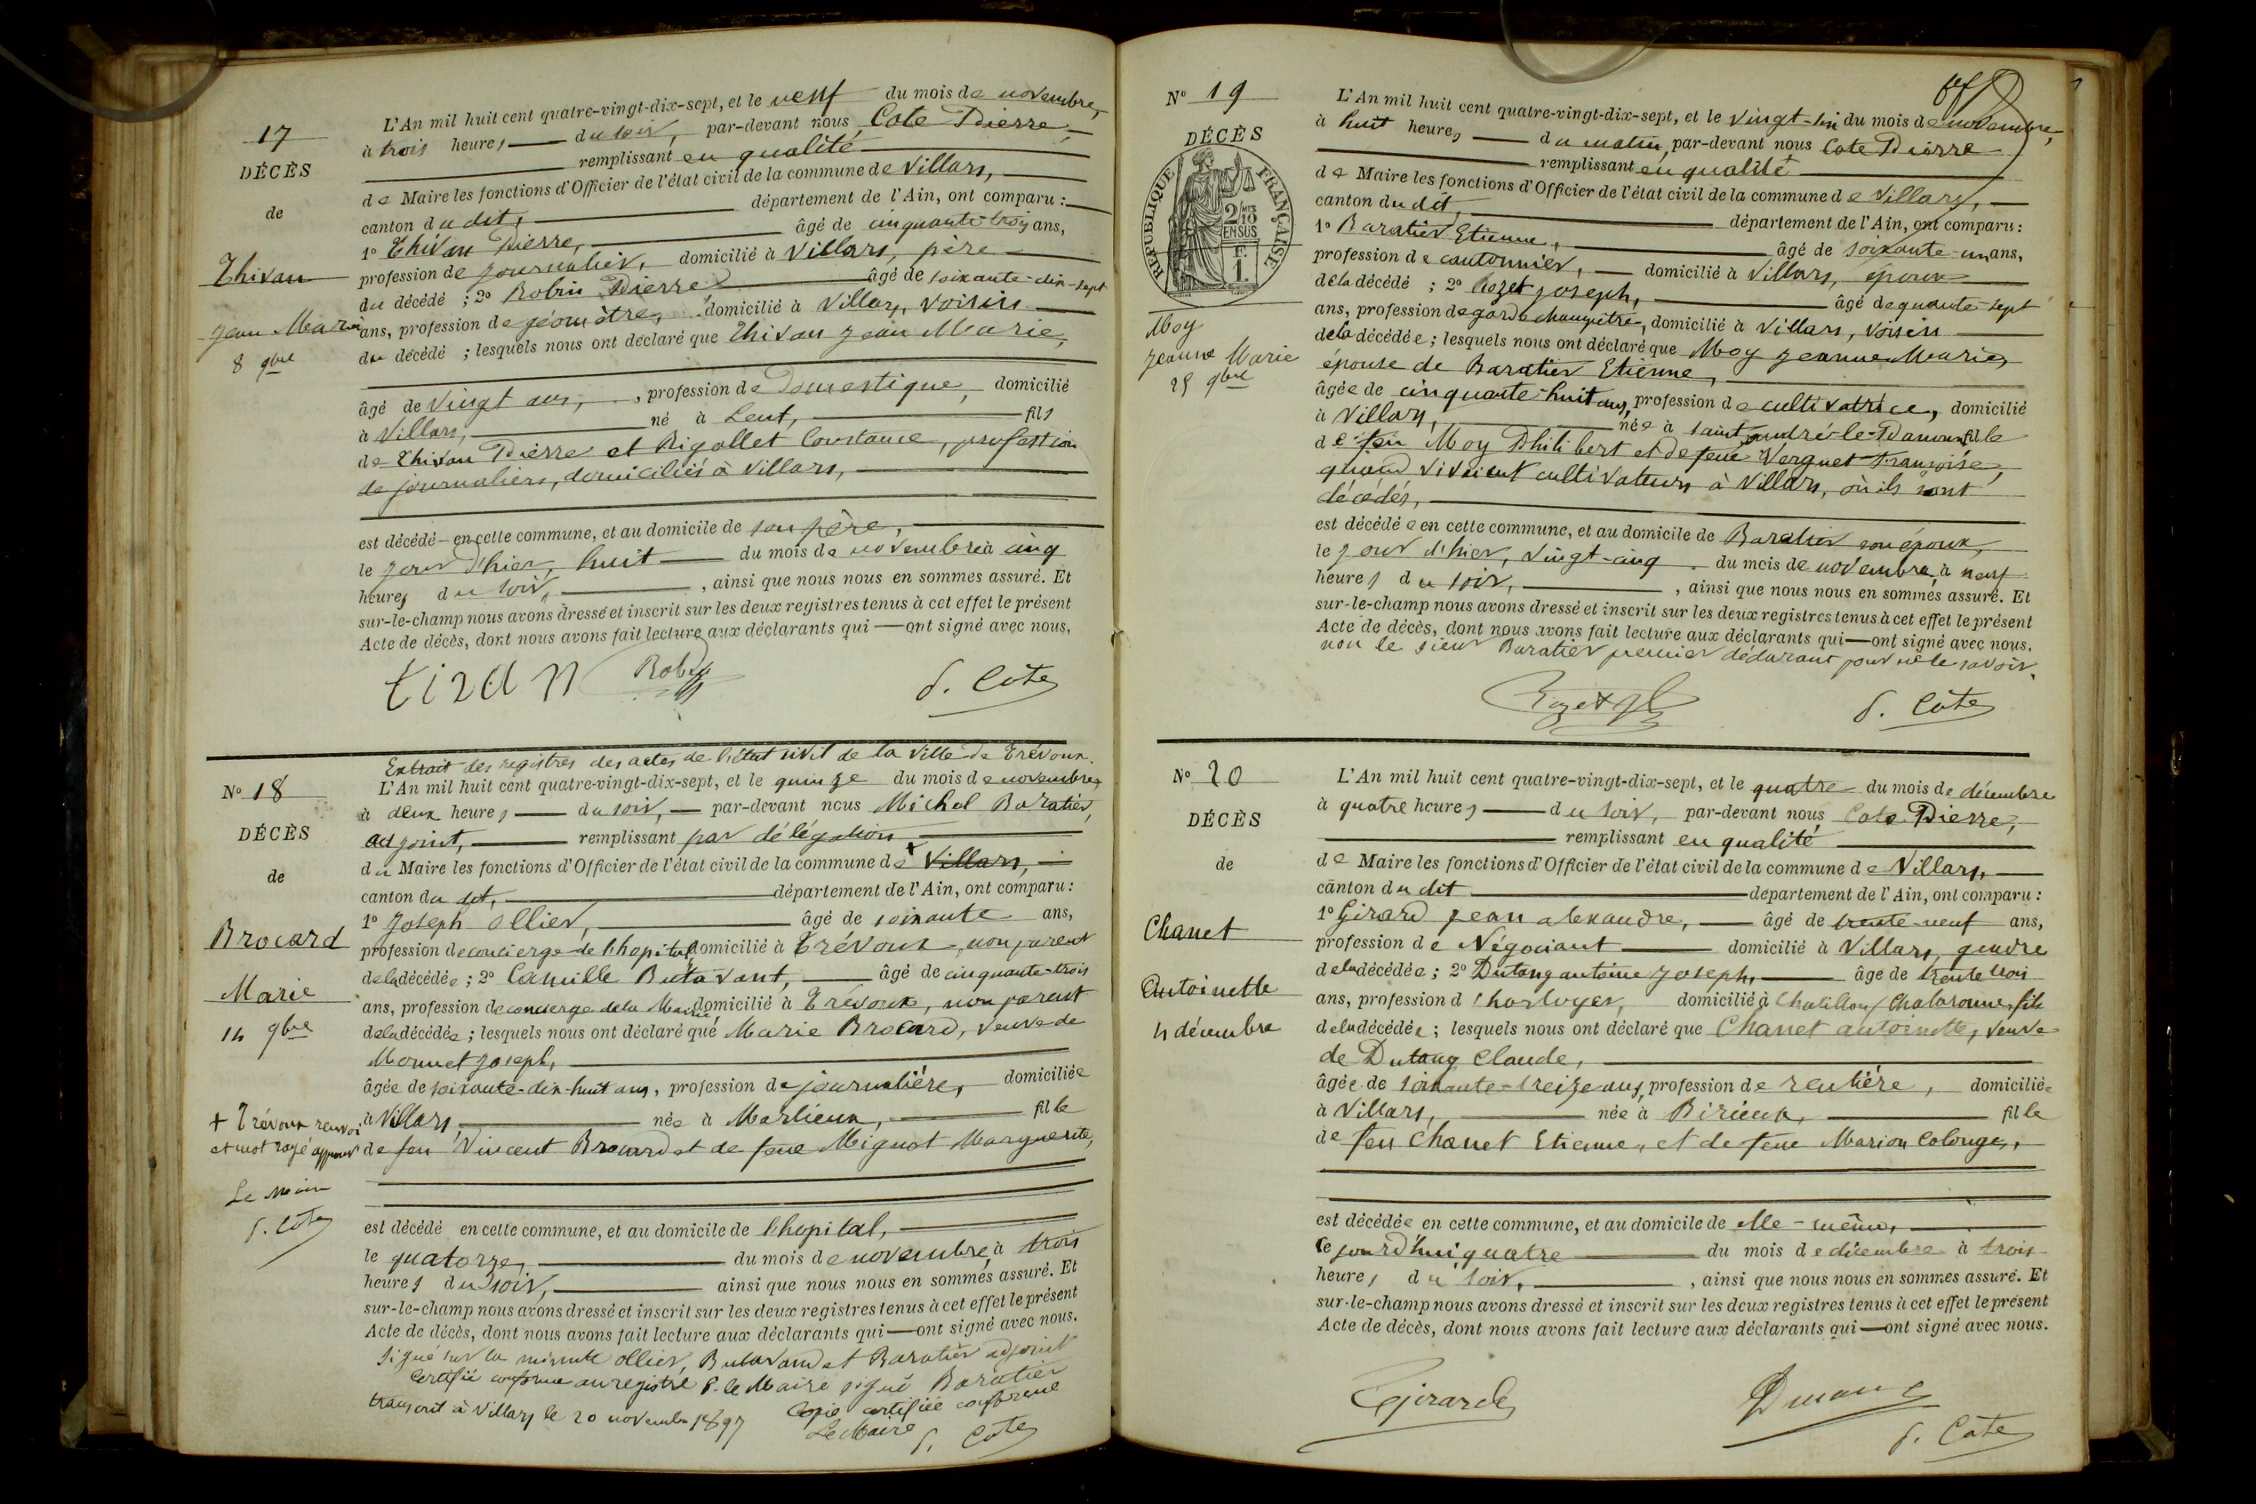 17
DÉCÈS
de
Thivan
Jean Marie
8 9bre
L'An mil huit cent quatre-vingt-dix-sept, et le neuf du mois de novembre,
à trois heures du soir, par-devant nous Cote Pierre,
remplissant en qualité
de Maire les fonctions d'Officier de l'état civil de la commune de Villars,
canton du dit, département de l'Ain, ont comparu :
1º Thivan Pierre, âgé de cinquante-trois ans,
profession de journalier, domicilié à Villars, père
du décédé ; 2º Robin Pierre âgé de soixante-dix-sept
ans, profession de géomètre, domicilié à Villars, voisin
du décédé ; lesquels nous ont déclaré que Thivan Jean Marie,
âgé de vingt ans, profession de Domestique, domicilié
à Villars, né à Lent, fils
de Thivan Pierre et Rigollet Constance, profession
de journaliers, domiciliés à Villars,
est décédé en cette commune, et au domicile de son père,
le jour d'hier, huit du mois de novembre à cinq
heures du soir, ainsi que nous nous en sommes assuré. Et
sur-le-champ nous avons dressé et inscrit sur les deux registres tenus à cet effet le présent
Acte de décès, dont nous avons fait lecture aux déclarants qui — ont signé avec nous.
tivan Robin P. Côte
Nº 18
DÉCÈS
de
Brocard
Marie
14 9bre
+ Trévoux renvoi
et mot rayé approuvé
Le Maire
P. Côte
Extrait des registres des actes de l'état civil de la ville de Trévoux.
L'An mil huit cent quatre-vingt-dix-sept, et le quinze du mois de novembre,
à deux heures du soir, par-devant nous Michel Baratier,
adjoint, remplissant par délégation
du Maire les fonctions d'Officier de l'état civil de la commune de + Villars,
canton du dit, département de l'Ain, ont comparu :
1º Joseph Ollier, âgé de soixante ans,
profession de concierge de l'hopital, domicilié à Trévoux, non parent
de la décédée ; 2º Camille Butavant, âgé de cinquante-trois
ans, profession de concierge de la Mairie domicilié à Trévoux, non parent
de la décédée ; lesquels nous ont déclaré que Marie Brocard, veuve de
Monnet Joseph,
âgée de soixante-dix-huit ans, profession de journalière, domiciliée
à Villars, née à Marlieux, fille
de feu Vincent Brocard et de feue Mignot Marguerite,
est décédé en cette commune, et au domicile de l'hopital,
le quatorze, du mois de novembre, à trois
heures du soir, ainsi que nous nous en sommes assuré. Et
sur-le-champ nous avons dressé et inscrit sur les deux registres tenus à cet effet le présent
Acte de décès, dont nous avons fait lecture aux déclarants qui — ont signé avec nous.
Signé sur la minute Ollier, Butavand et Baratier adjoint
Certifié conforme au registre P. le Maire signé Baratier
transcrit à Villars le 20 novembre 1897 Copie certifiée conforme
Le Maire P. Cote
Nº 19
DÉCÈS
RÉPUBLIQUE FRANÇAISE
2/10 EN SUS
F. 1.
Moy
Jeanne Marie
25 9bre
L'An mil huit cent quatre-vingt-dix-sept, et le vingt-six du mois de novembre,
à huit heures du matin, par-devant nous Cote Pierre
remplissant en qualité
de Maire les fonctions d'Officier de l'état civil de la commune de Villars,
canton du dit, département de l'Ain, ont comparu :
1º Baratier Etienne, âgé de soixante-un ans,
profession de cantonnier, domicilié à Villars, époux
de la décédé ; 2º Rozet Joseph, âgé de quante-sept
ans, profession de garde champêtre, domicilié à Villars, voisin
de la décédée ; lesquels nous ont déclaré que Moy Jeanne Marie,
épouse de Baratier Etienne,
âgée de cinquante-huit ans, profession de cultivatrice, domicilié
à Villars, née à saint-andré-le-Panoux fille
de feu Moy Philibert et de feue Verguet Françoise,
quand vivaient cultivateurs à Villars, où ils sont
décédés,
est décédée en cette commune, et au domicile de Baratier son époux,
le jour d'hier, vingt-cinq du mois de novembre, à neuf
heures du soir, ainsi que nous nous en sommes assuré. Et
sur-le-champ nous avons dressé et inscrit sur les deux registres tenus à cet effet le présent
Acte de décès, dont nous avons fait lecture aux déclarants qui — ont signé avec nous.
non le sieur Baratier premier déclarant pour ne le savoir.
Rozet P. Côte
Nº 20
DÉCÈS
de
Chanet
Antoinette
4 décembre
L'An mil huit cent quatre-vingt-dix-sept, et le quatre du mois de décembre
à quatre heures du soir, par-devant nous Cote Pierre,
remplissant en qualité
de Maire les fonctions d'Officier de l'état civil de la commune de Villars,
canton du dit département de l'Ain, ont comparu :
1º Girard Jean alexandre, âgé de trente-neuf ans,
profession de Négociant domicilié à Villars, gendre
de la décédée ; 2º Dutang antoine Joseph, âgé de trente trois
ans, profession d'horloger, domicilié à Chatillon s/ Chalaronne, fils
de la décédée ; lesquels nous ont déclaré que Chanet antoinette, veuve
de Dutang Claude,
âgée de soixante-treize ans, profession de rentière, domiciliée
à Villars, née à Birieux, fille
de feu Chanet Etienne, et de feue Marion Colonge,
est décédée en cette commune, et au domicile de elle-même,
le jourd'hui quatre du mois de décembre à trois
heures du soir, ainsi que nous nous en sommes assuré. Et
sur-le-champ nous avons dressé et inscrit sur les deux registres tenus à cet effet le présent
Acte de décès, dont nous avons fait lecture aux déclarants qui — ont signé avec nous.
Girard Dutang
P. Côte